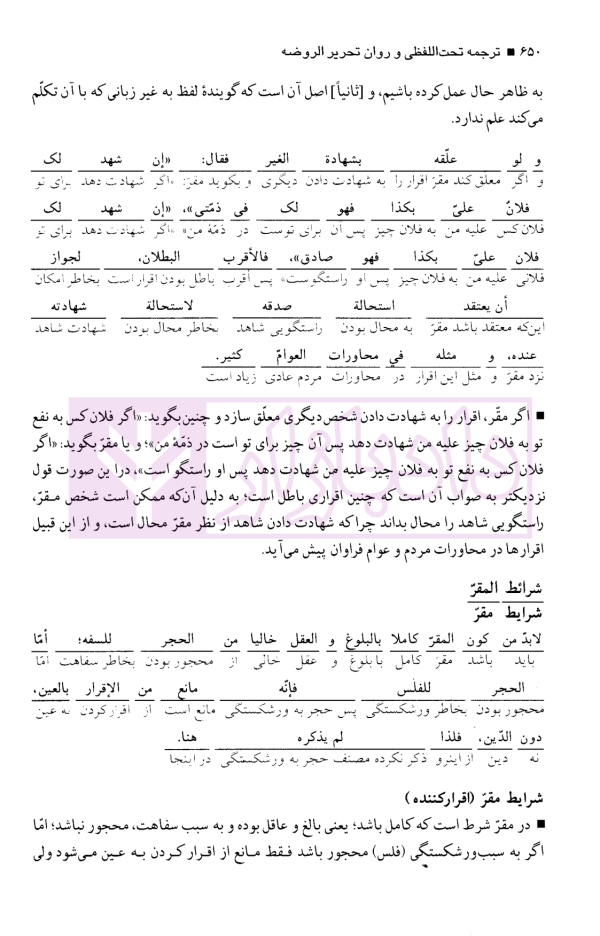 ۶۵۰ ■ ترجمه تحت‌اللفظی و روان تحریر الروضه
به ظاهر حال عمل کرده باشیم، و [ثانیاً] اصل آن است که گویندهٔ لفظ به غیر زبانی که با آن تکلّم
می‌کند علم ندارد.
و لو علّقه بشهادة الغیر فقال: «إن شهد لک
و اگر معلّق کند مقرّ اقرار را به شهادت دادن دیگری و بگوید مقرّ: «اگر شهادت دهد برای تو
فلانٌ علیّ بکذا فهو لک في ذمّتي»، «إن شهد لک
فلان کس علیه من به فلان چیز پس آن برای توست در ذمّهٔ من» «اگر شهادت دهد برای تو
فلان علیّ بکذا فهو صادق»، فالأقرب البطلان، لجواز
فلانی علیه من به فلان چیز پس او راستگوست» پس أقرب باطل بودن اقرار است بخاطر امکان
أن یعتقد استحالة صدقه لاستحالة شهادته
این‌که معتقد باشد مقرّ به محال بودن راستگویی شاهد بخاطر محال بودن شهادت شاهد
عنده، و مثله في محاورات العوامّ کثیر.
نزد مقرّ و مثل این اقرار در محاورات مردم عادی زیاد است
■ اگر مقّر، اقرار را به شهادت دادن شخص دیگری معلّق سازد و چنین بگوید: «اگر فلان کس به نفع
تو به فلان چیز علیه من شهادت دهد پس آن چیز برای تو است در ذمّهٔ من»؛ و یا مقرّ بگوید: «اگر
فلان کس به نفع تو به فلان چیز علیه من شهادت دهد پس او راستگو است»، دراین صورت قول
نزدیکتر به صواب آن است که چنین اقراری باطل است؛ به دلیل آن‌که ممکن است شخص مـقرّ،
راستگویی شاهد را محال بداند چرا که شهادت دادن شاهد از نظر مقرّ محال است، و از این قبیل
اقرارها در محاورات مردم و عوام فراوان پیش می‌آید.
شرائط المقرّ
شرایط مقرّ
لابدّ من کون المقرّ کاملا بالبلوغ و العقل خالیا من الحجر للسفه؛ أمّا
باید باشد مقرّ کامل با بلوغ و عقل خالی از محجور بودن بخاطر سفاهت امّا
الحجر للفلس فإنّه مانع من الإقرار بالعین،
محجور بودن بخاطر ورشکستگی پس حجر به ورشکستگی مانع است از اقرار کردن به عین
دون الدّین، فلذا لم یذکره هنا.
نه دین از اینرو ذکر نکرده مصنف حجر به ورشکستگی در اینجا
شرایط مقرّ (اقرارکننده)
■ در مقرّ شرط است که کامل باشد؛ یعنی بالغ و عاقل بوده و به سبب سفاهت، محجور نباشد؛ امّا
اگر به سبب ورشکستگی (فلس) محجور باشد فـقط مـانع از اقـرار کـردن بـه عـین مـی‌شود ولی